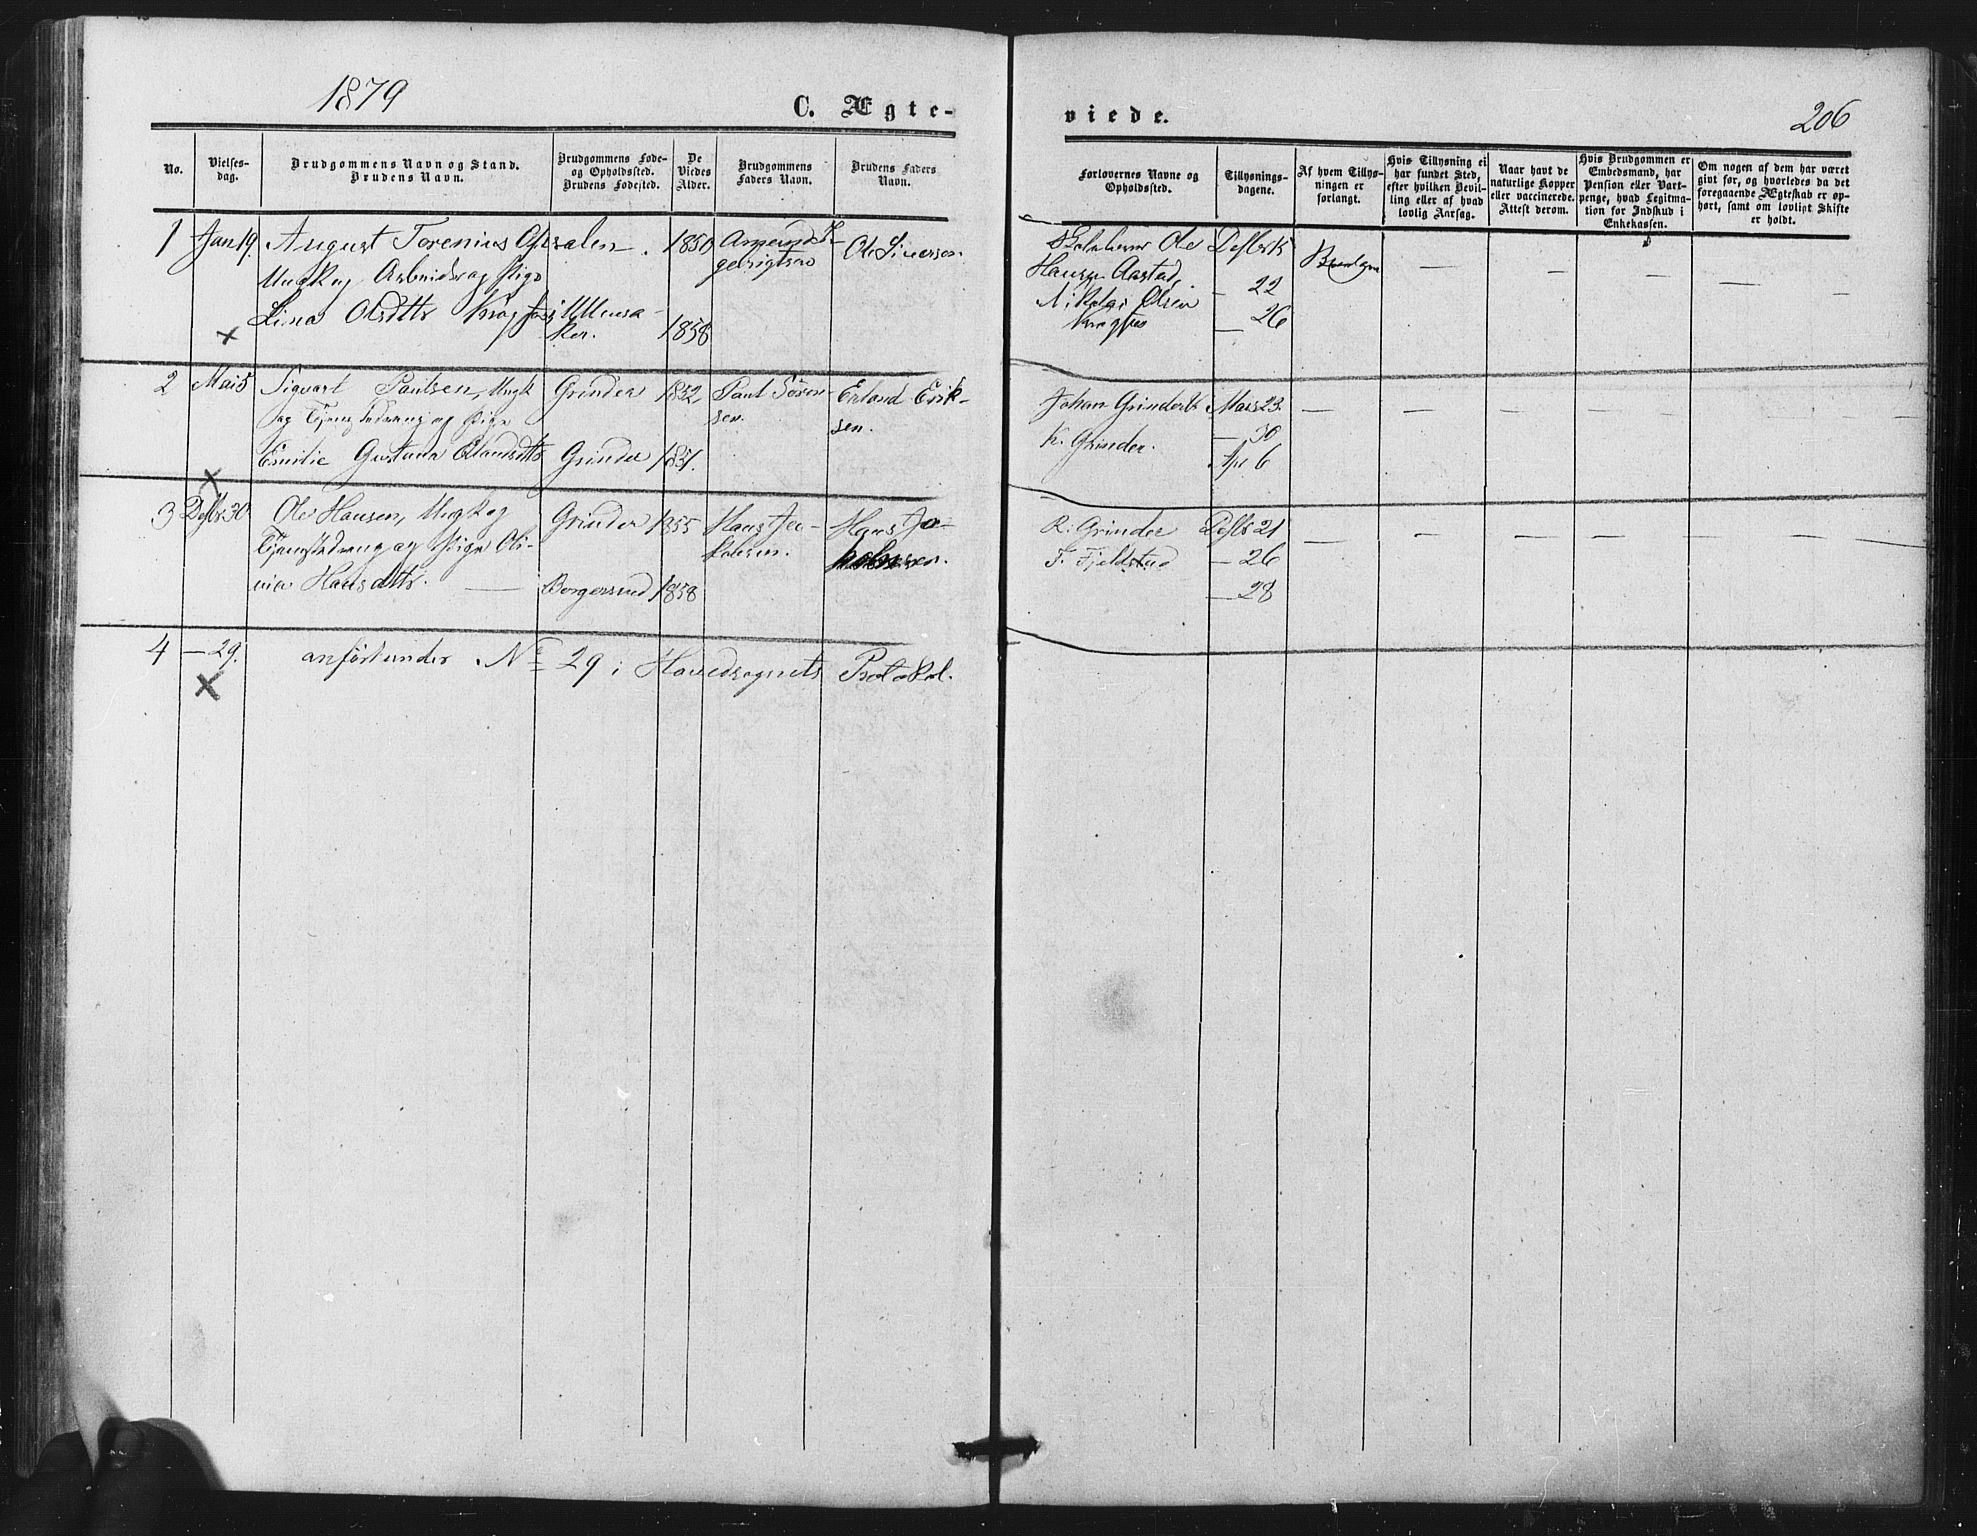 1879
C. Ægte-
viede.
206
No.
Vielses-
dag.
Brudgommens Navn og Stand.
Brudens Navn.
Brudgommens Føde-
og Opholdssted.
Brudens Fødested.
De
Viedes
Alder.
Brudgommens
Faders Navn.
Brudens Faders
Navn.
Forlovernes Navne og
Opholdssted.
Tillysnings-
dagene.
Af hvem Tillys-
ningen er
forlangt.
Hvis Tillysning ei
har fundet Sted,
efter hvilken Bevil-
ling eller af hvad
lovlig Aarsag.
Naar havt de
naturlige Kopper
eller vaccinerede.
Attest derom.
Hvis Brudgommen er
Embedsmand, har
Pension eller Vart-
penge, hvad Legitima-
tion for Indskud i
Enkekassen.
Om nogen af dem har været
gift før, og hvorledes da det
foregaaende Ægteskab er op-
hørt, samt om lovligt Skifte
er holdt.
1
Jan 19.
August Torenius Opsalen
Ungk og Arbeider og Pige
Lina Olsdtr Kragfos
Ullensa-
ker.
1850
1858
Ole Siversen
Ole
Hansen Aastad,
Nikolai Olsen
Kragfos
22
26
2
Mai 5
Sigvart Paulsen, Ungk
og Tjenestedreng og Pige
Emilie Gustava Erlandsdtr
Grinder
Grinder
1852
1851.
Paul Søren-
sen.
Erland Erik-
sen.
Johan Grinder
K. Grinder.
Mars 23.
— 30
Apr 6
3
Desbr 30
Ole Hansen, Ungk og
Tjenestedreng og Pige Oli-
via Hansdtr.
Grinder
Borgersrud
1855
1858
Hans Ja-
kobsen.
Hans Jo-
R. Grinder
F. Fjeldstad
Desbr 21
— 26
— 28
4
— 29.
anført under No 29 i Hovedsognets Protokol.